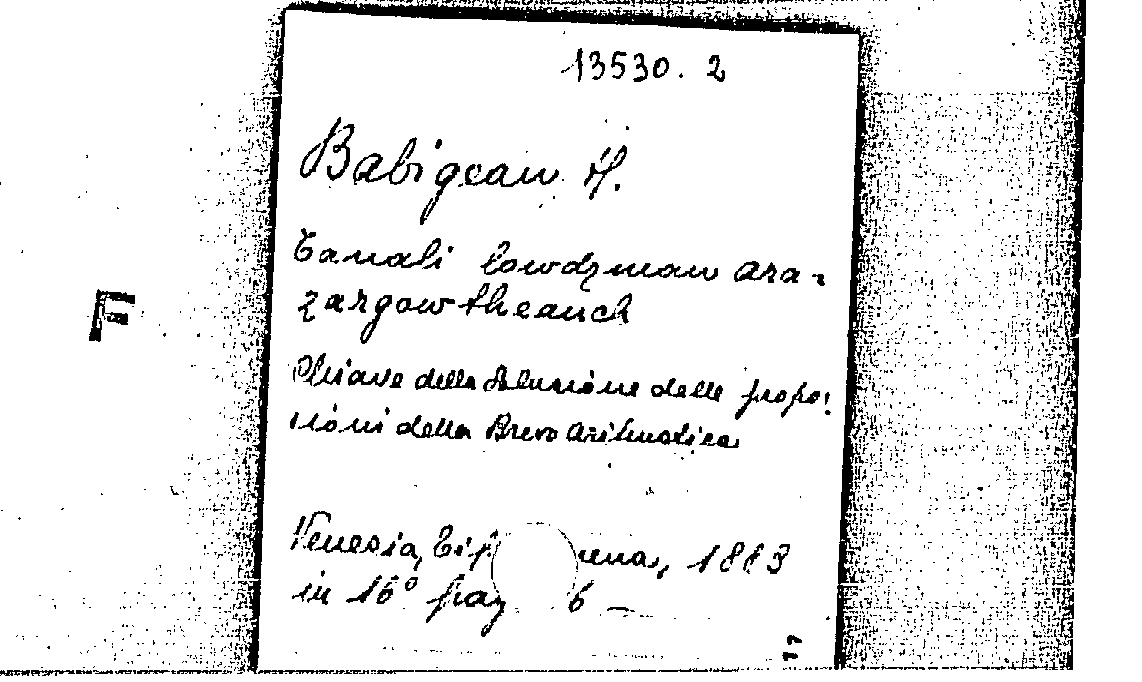 13530. 2
Babigean H.
Banali lowdzman ara-
zargowtheanch
F
Chiave della Soluzione delle propo:
sioni della Breve Aritmetica
Venezia, Tip ena, 1883
in 16° pag 6 —
17